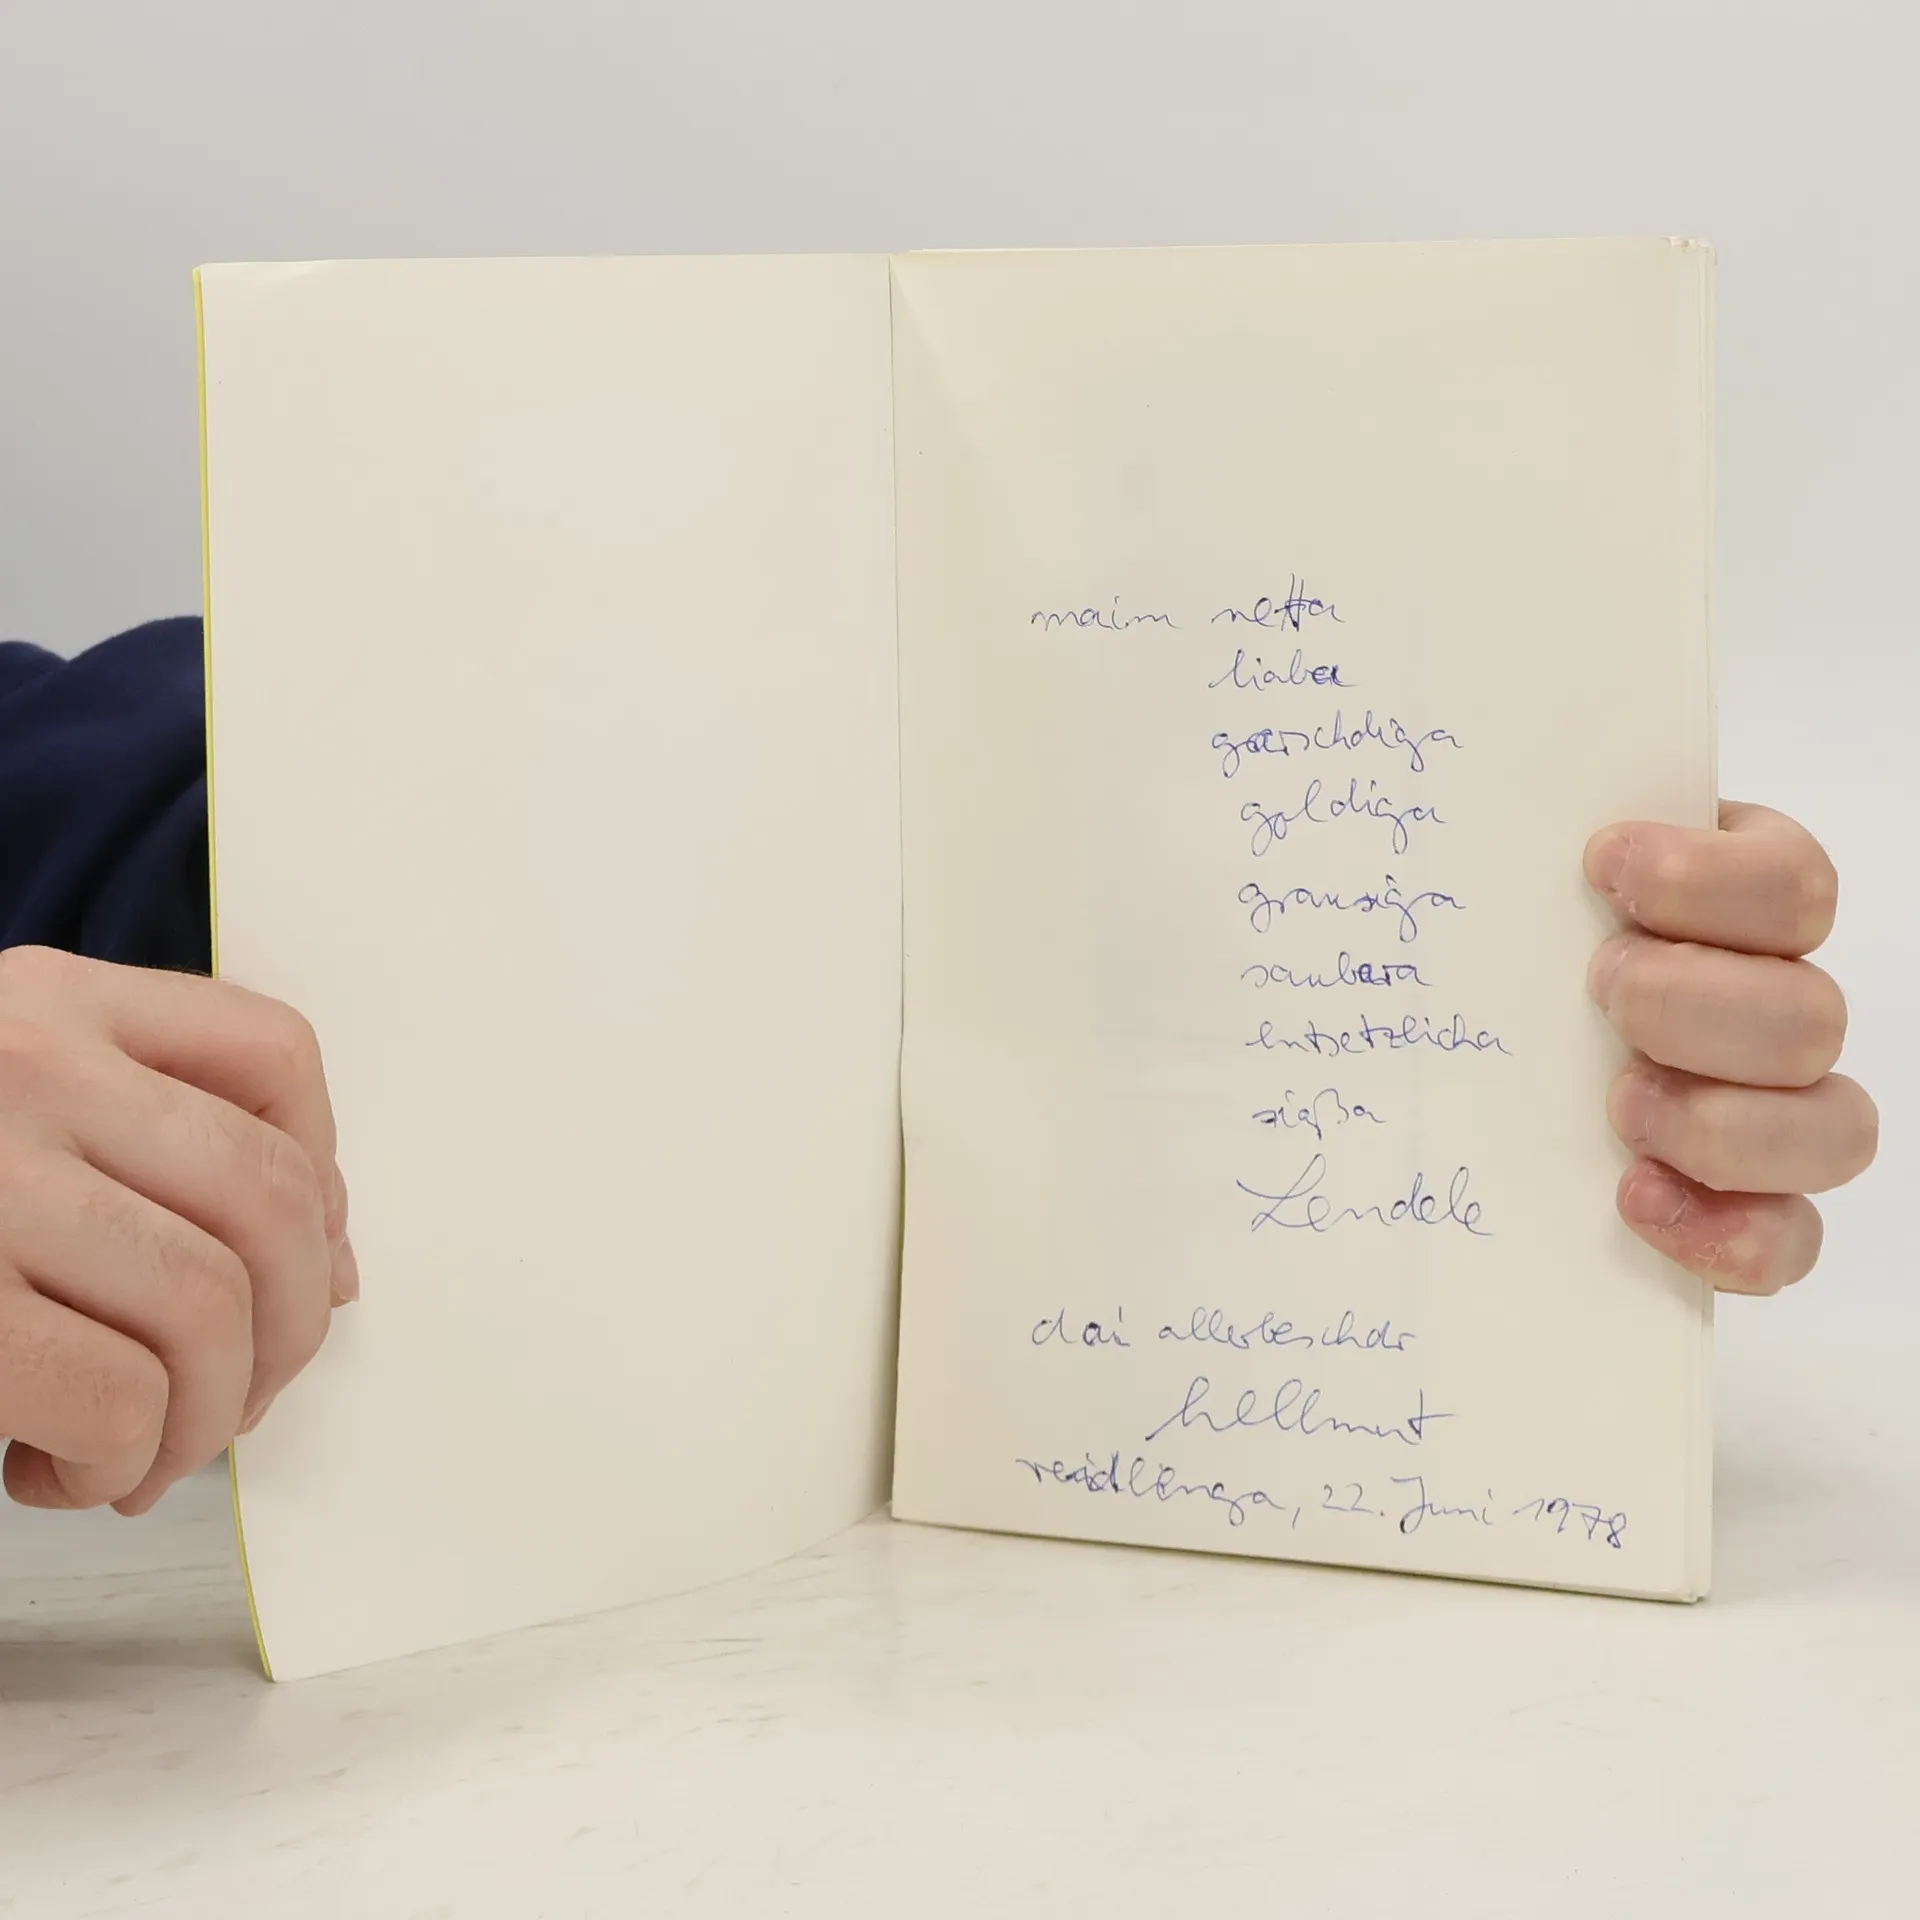 maim netta
liaba
garschdiga
goldiga
grausiga
saubera
entsetzlicha
siaßa
Lendele
dai allerbeschdr
hellmut
reidlenga, 22. Juni 1978